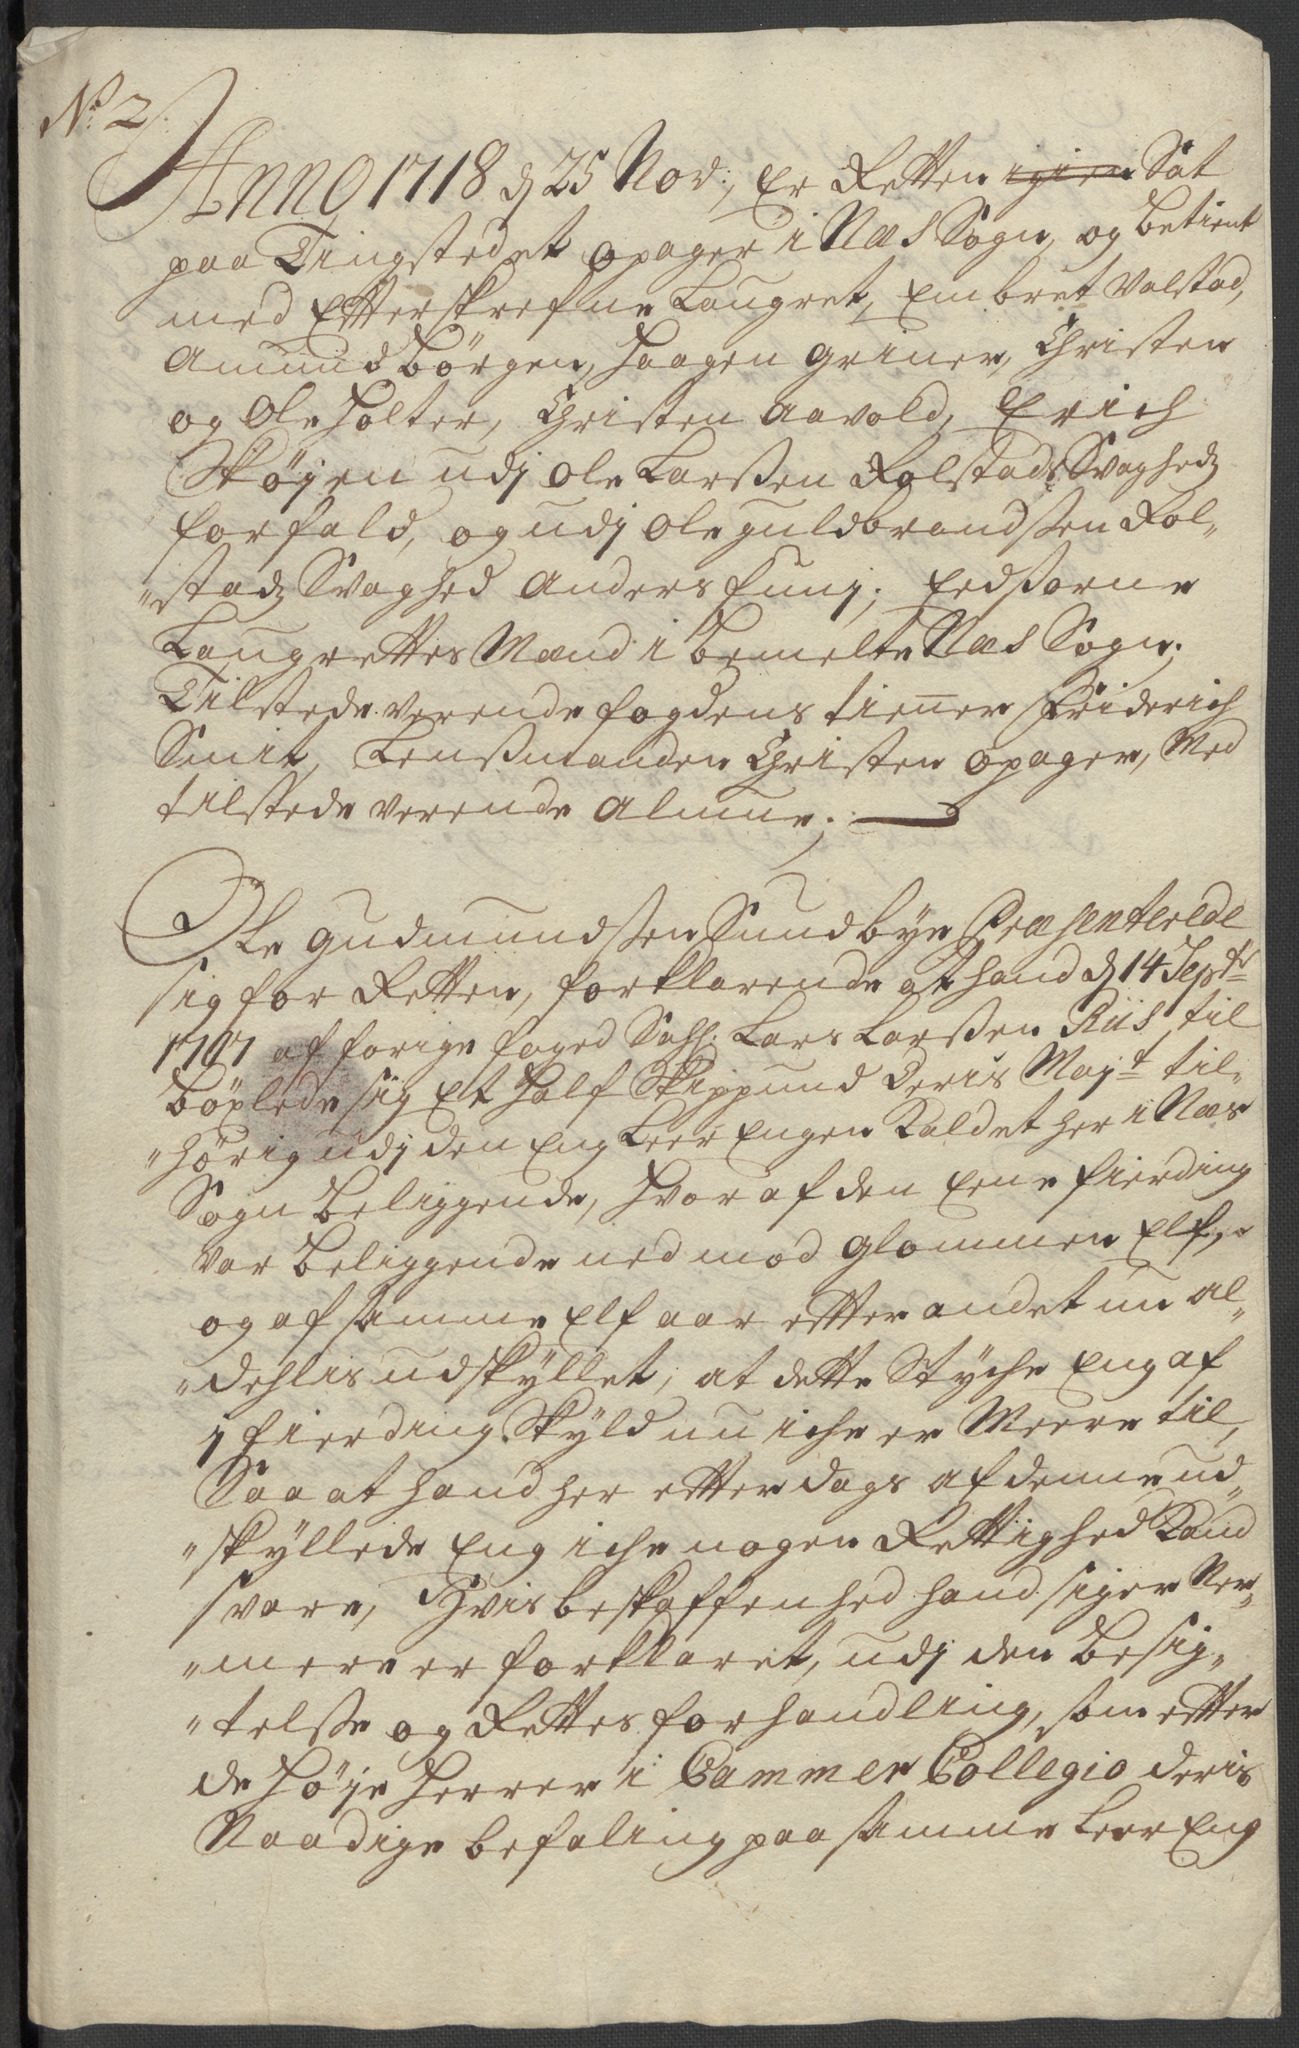 No 2.
Anno 1718 d 25 Nov:, Er Retten igien Sat
paa Tingstedet opager i Næs Sogn, og betient
med Efterskrefne Laugret, Embret Valstad,
Amund Börgen, Haagen Griner, Christen
og Ole Holter, Christen Aavold, Erich
Skøyen udj Ole Larssen Rolstads Svagheds
forfald, og udj Ole Guldbrandssen Rol„
„stads Svaghed Anders Funj; Eedsorne
Laugrettes Mænd i bemelte Næs Sogn;
Tilstede verende fogdens tienner Friderich
Smit, Lensmanden Christen opager, Med
tilstede verende Almue;
Ole Gudmundssen Sundbye Præsenterede
sig for Retten, forklarende at hand d 14 Septbr
1707 af forige foged Sahl: Lars Larssen Riis til
böxlede sig Et Half Skippund Deris Mayt til„
„hörig udj den Eng Leer Engen Kaldet her i Næs
Sogn beliggende, Hvor af den Eene fierding
var beliggende ned mod Glommen Elf,
og af samme Elf aar efter andet nu al„
„dehlis udskyllet, at dette Styche Eng af
1 fierding Skyld nu iche er Meere til,
Saa at hand her efter dags af denne ud„
„skyllede Eng iche nogen Rettighed Kand
svare, Hvis beskaffenhed hand siger Ner„
„mere er forklaret, udj den besig„
„telsse og Rettes forhandling, som efter
de Høye Herrer i Cammer Collegio deris
Naadige befaling paa samme Leer Eng